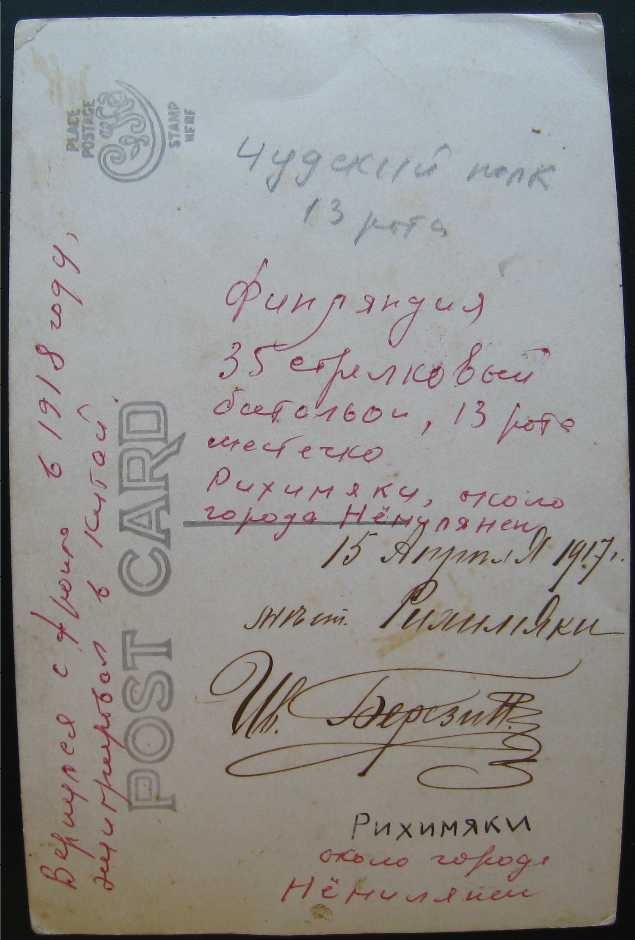 PLACE
POSTAGE
STAMP
HERE
Чудский полк
13 рота
Финляндия
35 стрелковый
батальон, 13 рота
местечко
Рихимяки, около
города Нёмилянен
15 Апреля 1917 г.
мѣст. Рихимяки
Ив. Березин
Рихимяки
около города
Нёмилянен
Вернулся с фронта в 1918 году,
эмигрировал в Китай.
POST CARD